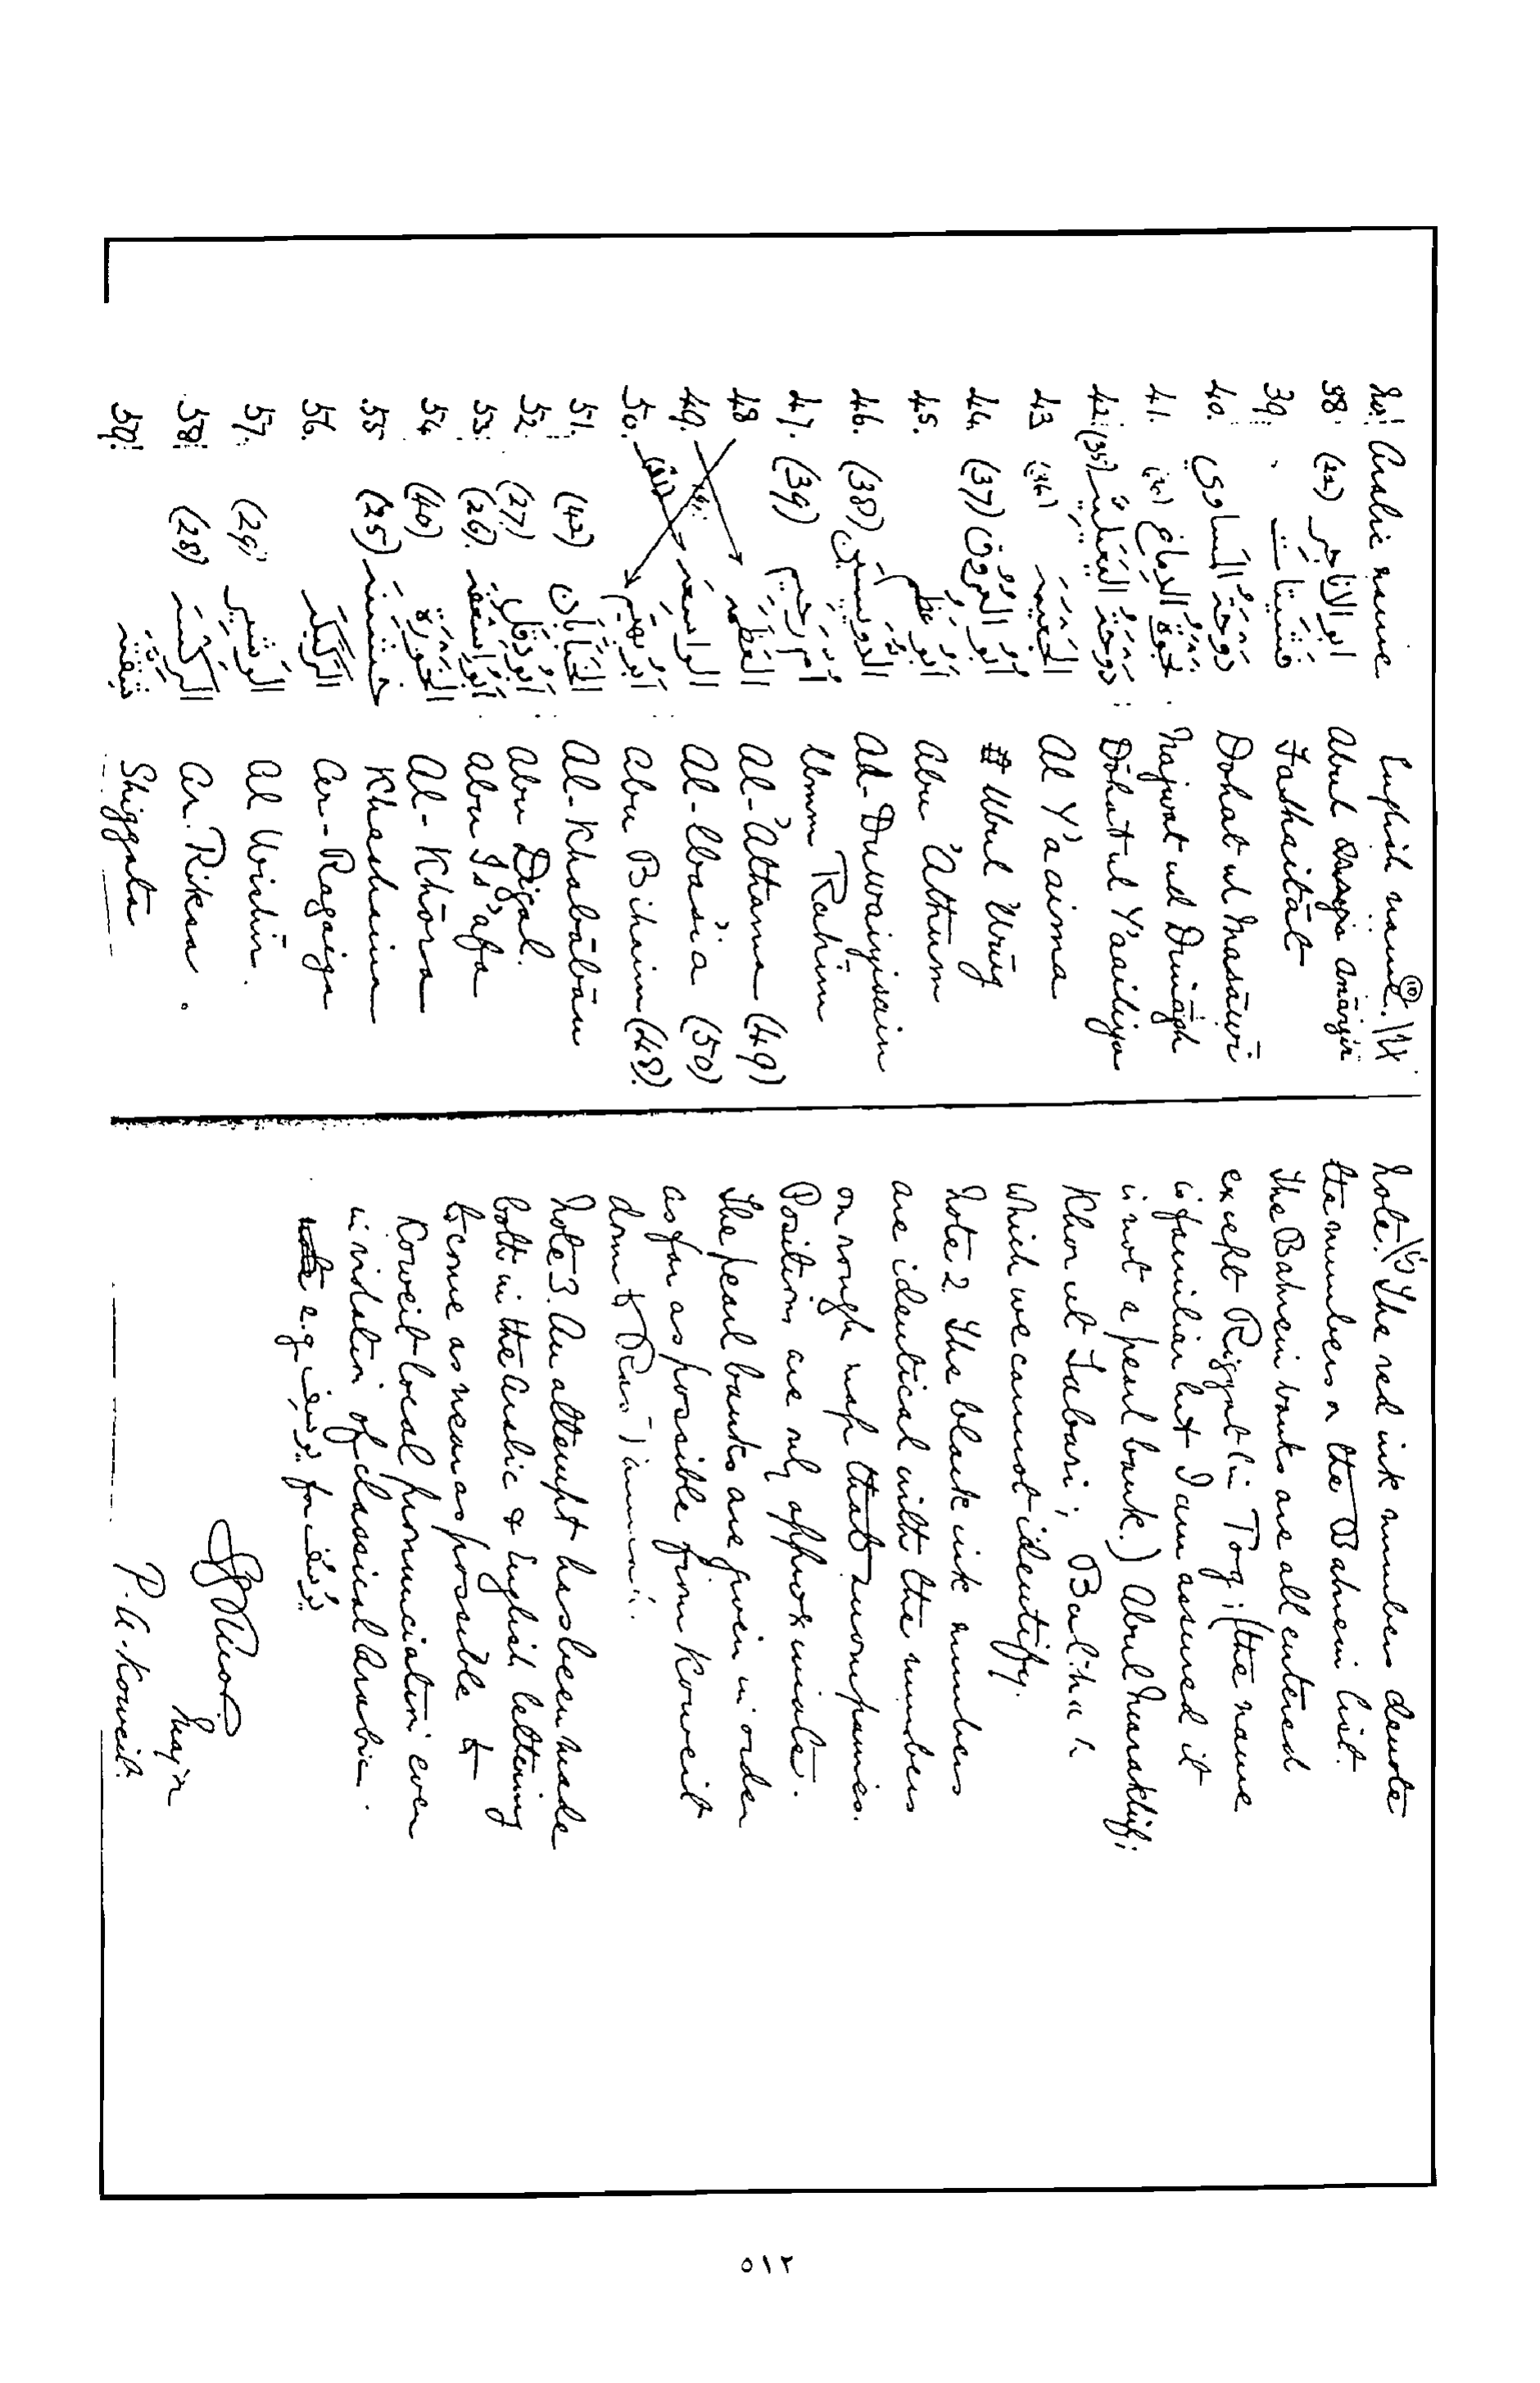 No. Arabic name English name. (10)
38 (22) ابو الاناجير Abul Anāyir
39. فشتات Fashaitāt
40. دوحة المساوي Dohat ul Masāwī
41. نجوة الدماغ Najwat ud Dmāgh
42. (35) دوحة اليعيلية Dōhat ul Y'aailiya
43 (36) اليعيمه Al Y'aaima
44. (37) أبو العروق Ubul 'Urūg
45. أبو عظم Abu 'Athum
46. (38) الدويسين Ad-Duwaiyisain
47. (39) أم رحيم Umm Rahīm
48 العظمه Al-'Athama (49)
49. الواسعه Al-Uasia (50)
50. (41) أبو بهيم Abu Bihaim (48).
51. (42) الخبابان Al-Khabābān
52. (27) أبو دقل Abu Digal.
53. (26) أبو اسعفه Abu Is'afa
54. (40) الخوره Al-Khōra
55. (25) خشينه Khashaina
56. الرقيقه Ar-Ragaiga
57. (29) الوشير Al Wishīr.
58. (28) الركسه Ar Riksa.
59. شقته Shiggata
Note. (1) The red ink numbers denote
the numbers on the Bahrein list.
The Bahrein banks are all entered
except Riggat bin Toq; (the name
is familiar but I am assured it
is not a pearl bank.) Abul Marakhif;
Khor ul Labari;
which we cannot identify.
Note 2. The black ink numbers
are identical with the numbers
on rough map that accompanies.
Positions are only approximate.
The pearl banks are given in order
as far as possible from Koweit
down to Ras
Note 3. An attempt has been made
both in the Arabic & English lettering
to come as near as possible to
Koweit local pronunciation even
in violation of classical Arabic.
e.g. for
Major
P.A. Koweit.
٥١٢